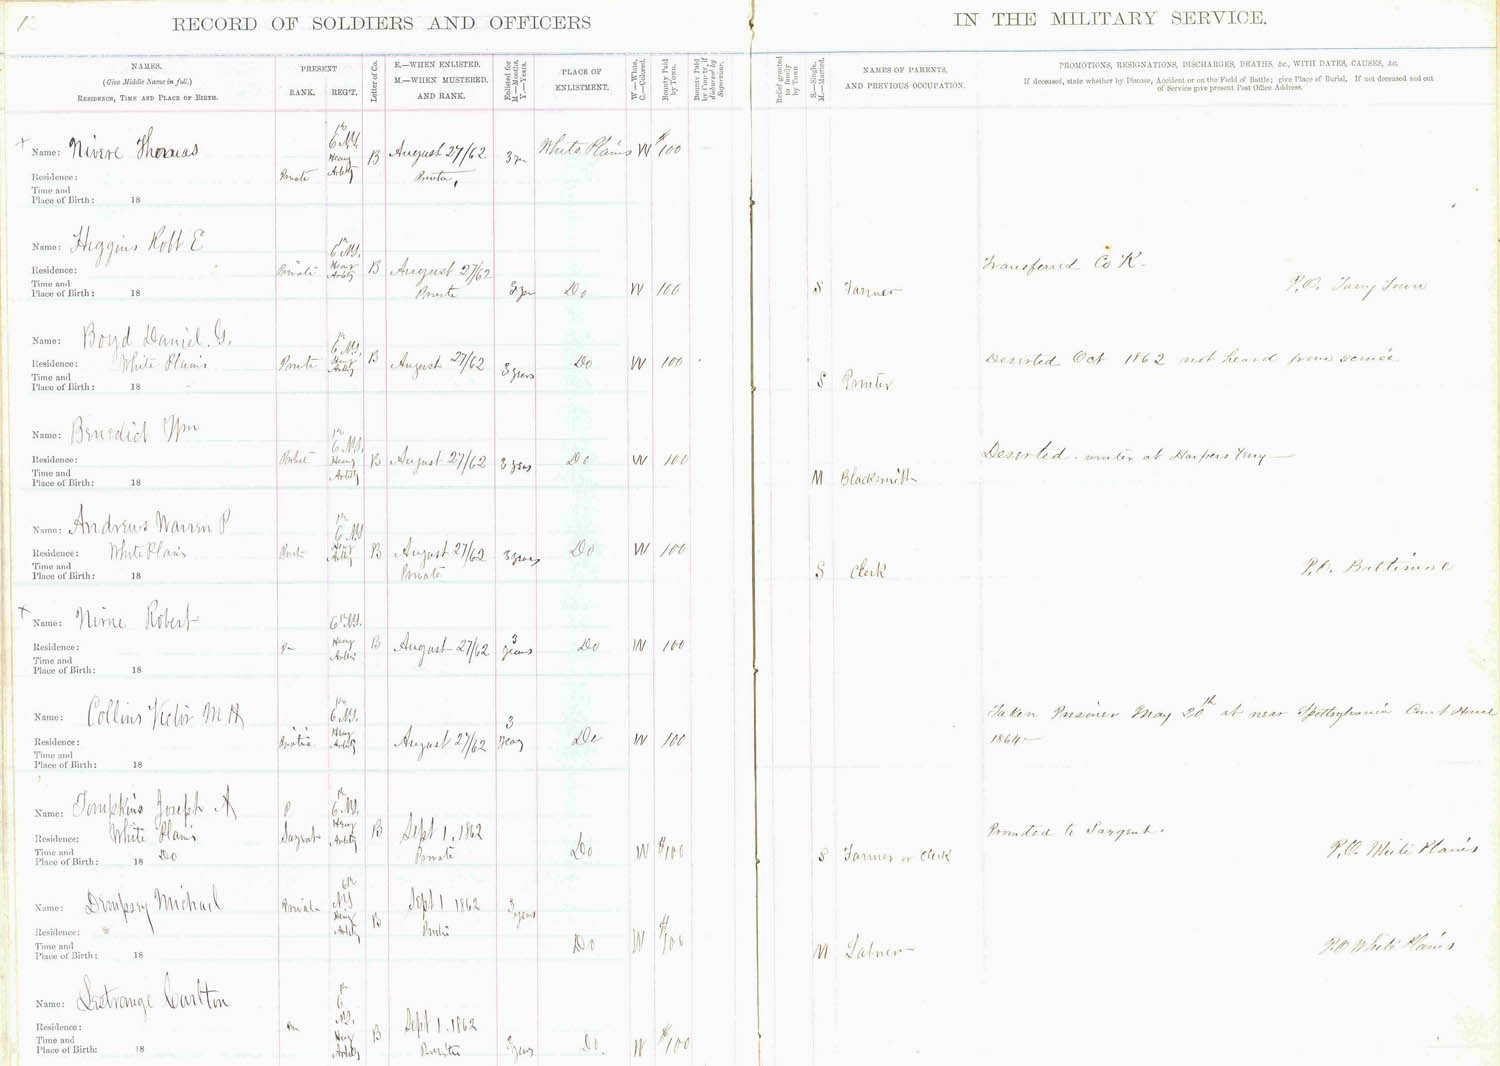 RECORD OF SOLDIERS AND OFFICERS IN THE MILITARY SERVICE.
NAMES.
(Give Middle Name in full.)
RESIDENCE, TIME AND PLACE OF BIRTH.
PRESENT
RANK. REG'T.
Letter of Co.
E.—WHEN ENLISTED.
M.—WHEN MUSTERED.
AND RANK.
Enlisted for
M—Months.
Y.—Years.
PLACE OF
ENLISTMENT.
W.—White,
C.—Colored.
Bounty Paid
by Town.
Bounty Paid
by County, if
disbursed by
Supervisor.
Relief granted
to family
by Town
S.—Single,
M.—Married.
NAMES OF PARENTS,
AND PREVIOUS OCCUPATION.
PROMOTIONS, RESIGNATIONS, DISCHARGES, DEATHS, &c, WITH DATES, CAUSES, &c.
If deceased, state whether by Disease, Accident or on the Field of Battle; give Place of Burial, If not deceased and out
of Service give present Post Office Address.
Name: Nivere Thomas 6 N.Y. Heavy B August 27/62 White Plains W $100
Residence: Private Private
Time and
Place of Birth: 18
Name: Higgins Robt E 6 N.Y.
Residence: Private Heavy B August 27/62 Transferred Co K.
Time and
Place of Birth: 18 Private Do W 100 S Farmer P.O. Tarry Town
Name: Boyd Daniel. G. 6 N.Y.
Residence: White Plains Private Heavy B August 27/62 3 years Do W 100 Deserted Oct 1862 not heard from
Time and
Place of Birth: 18 S Printer
Name: Benedict Wm 6 N.Y.
Residence: Heavy B August 27/62 3 years Do W 100 Deserted. at Harpers Ferry
Time and
Place of Birth: 18 M Blacksmith
Name: Andrews Warren P 6 N.Y
Residence: White Plains Heavy B August 27/62 3 years Do W 100
Time and
Place of Birth: 18 Private S Clerk P.O. Baltimore
Name: Nirne Robert 6 N.Y.
Residence: Heavy B August 27/62 3 years Do W 100
Time and
Place of Birth: 18
Name: Collins Victor M H 6 N.Y. Taken Prisoner May 20th at near Spottsylvania Court House
Residence: Private Heavy August 27/62 3 Do W 100 1864
Time and
Place of Birth: 18
Name: Tompkins Joseph A 6 N.Y.
Residence: White Plains Heavy B Sept 1, 1862 Promoted to Sargent.
Time and
Place of Birth: 18 Do Private Do W $100 S Farmer or Clerk P.O. White Plains
Name: Dempsey Michael Private NY Heavy B Sept 1 1862 3 years
Residence:
Time and
Place of Birth: 18 Do W $100 M P.O White Plains
Name: Lestrange Carlton 6 N.Y.
Residence: Heavy B Sept 1. 1862
Time and
Place of Birth: 18 3 years Do. W $100